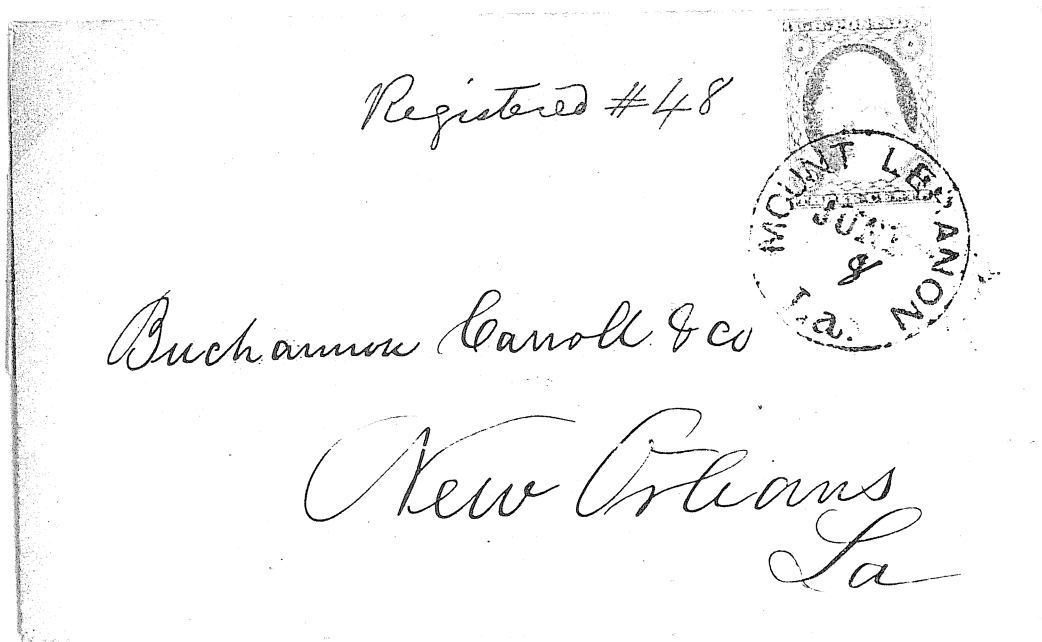 U.S. POSTAGE
Registered #48
MOUNT LEBANON
JUN
8
La.
Buchannon Carroll & co
New Orleans
La